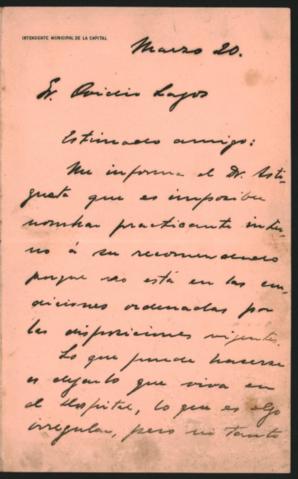 INTENDENTE MUNICIPAL DE LA CAPITAL
Marzo 20.
Sr. Ovidio Lagos
Estimado amigo:
Me informa el Dr. Asti-
gueta que es imposible
nombrar practicante inter-
no á su recomendado
porque no está en las con-
diciones ordenadas por
las disposiciones vigentes.
Lo que puede hacerse
es dejarlo que viva en
el Hospital, lo que es algo
irregular, pero no tanto